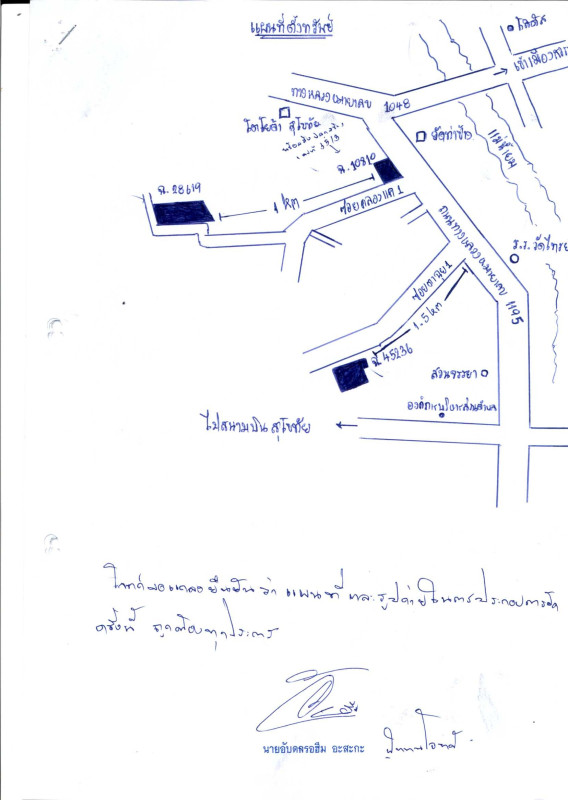 แผนที่ตั้งทรัพย์
โลตัส
เข้าเมืองสวรร
ทางหลวงหมายเลข 1048
โตโยต้า สุโขทัย
วัดท่าชัย
แม่น้ำยม
ฉ. 10810
ฉ. 28619
1 km
ซอยคลองแค 1
ถนนทางหลวงหมายเลข 1195
ร.ร. วัดไทรย
1.5 km
ฉ. 45236
สวนจรรยา
องค์การบริหารส่วนตำบล
ไปสนามบินสุโขทัย
โจทก์ขอแถลงยืนยันว่า แผนที่ และรูปถ่ายในการประกอบการยึด
ครั้งนี้ ถูกต้องทุกประการ
นายอับดลรอฮีม อะสะกะ
ผู้แทนโจทก์